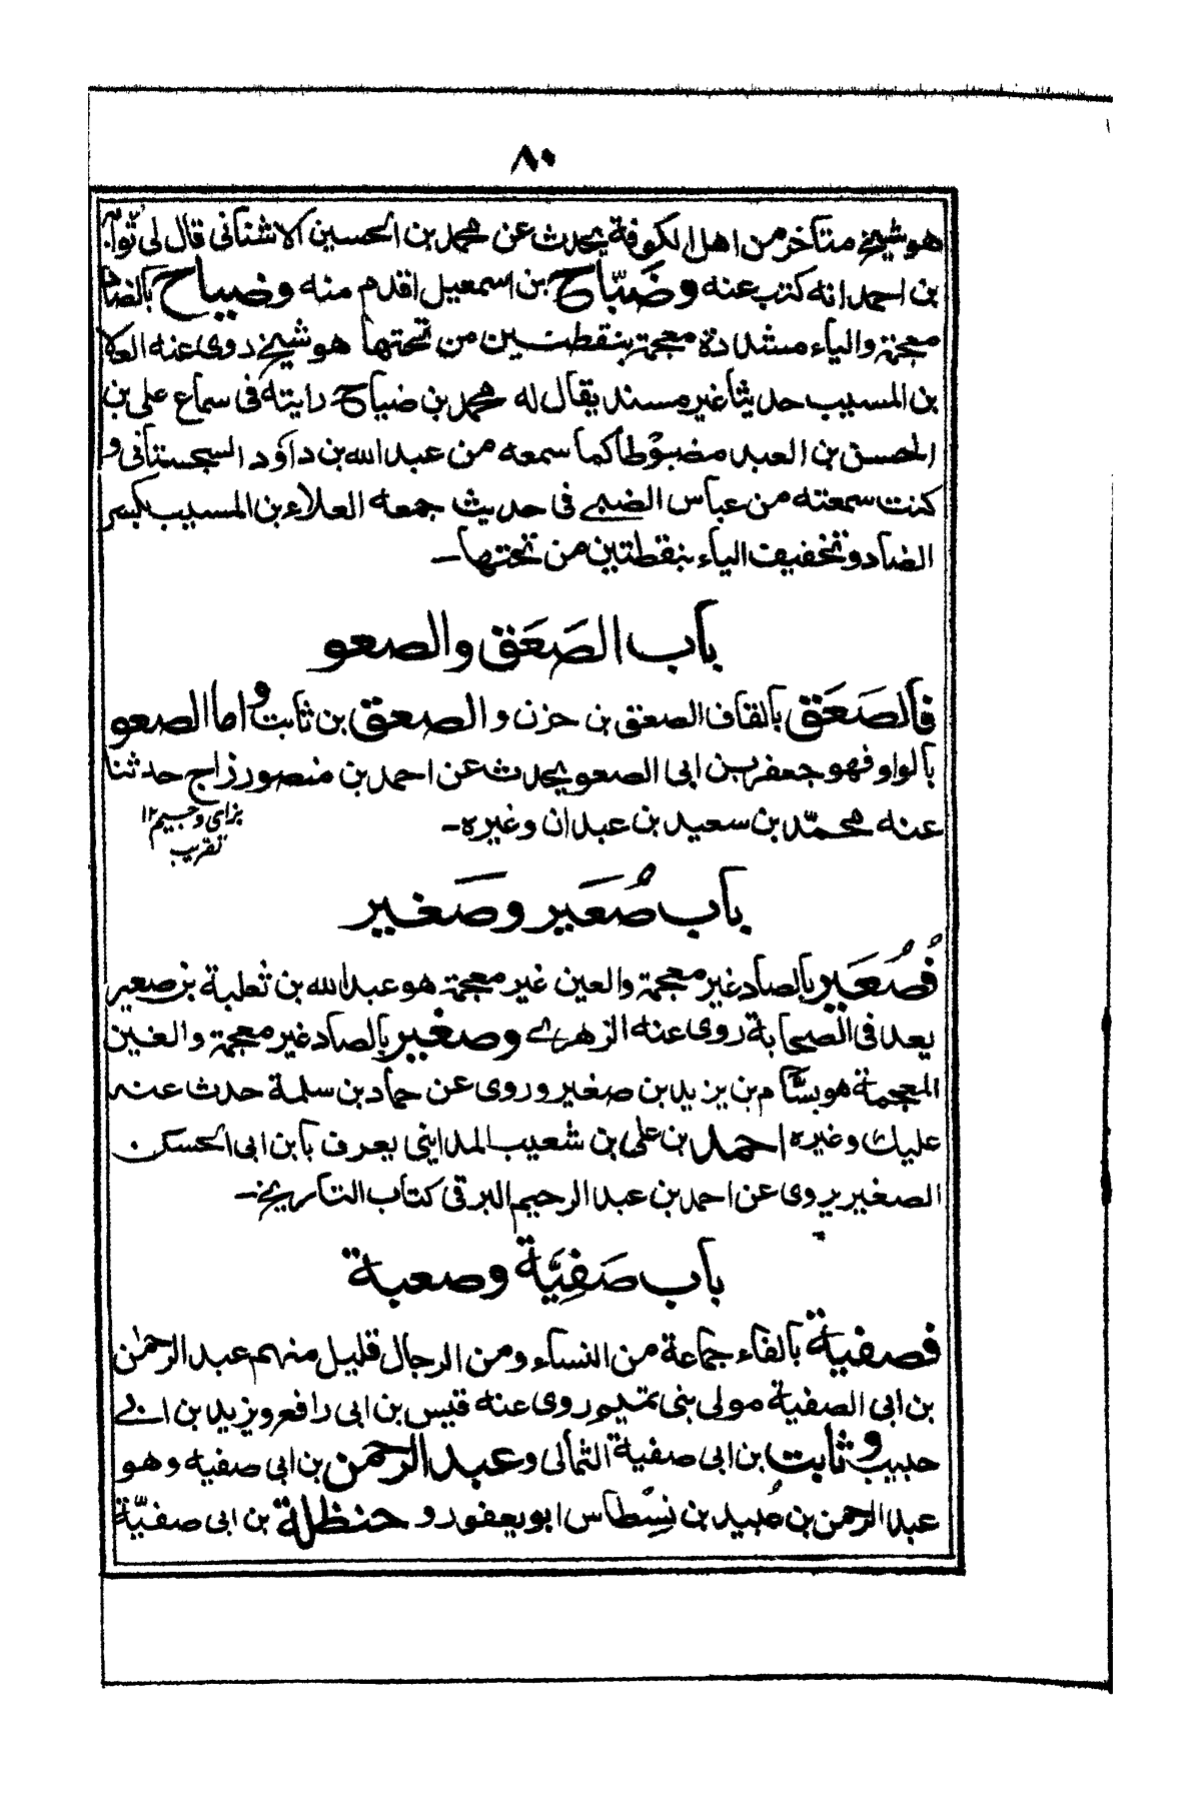 ٨٠
هو شيخ متأخر من اهل الكوفة يحدث عن محمد بن الحسين الاشنانى قال لى ثوابة
بن احمد انه كتب عنه وضَبّاح بن اسمعيل اقدم منه وضياح بالضاد
معجمة والياء مشددة معجمة بنقطتين من تحتها هو شيخ روى عنه العلا
بن المسيب حديثا غير مسند يقال له محمد بن ضياح رايته فى سماع على بن
المحسن بن العبد مضبوطا كما سمعه من عبد الله بن داؤد السجستانى و
كنت سمعته من عباس الضبے فى حديث جمعه العلاء بن المسيب بكسر
الضاد وتخفيف الياء بنقطتين من تحتها۔
باب الصَعَق والصعو
فالصَعَق بالقاف الصعق بن حزن والصعق بن ثابت واما الصعو
بالواو فهو جعفر بن ابى الصعو يحدث عن احمد بن منصور زاج حدثنا
عنه محمّد بن سعيد بن عبدان وغيره۔
بزاى وجيم ١٢
تقريب
باب صُعَير وصَغير
فُصُعَير بالصاد غير معجمة والعين غير معجمة هو عبد الله بن ثعلبة بن صعير
يعد فى الصحابة روى عنه الزهرے وصغير بالصاد غير معجمة والغين
المعجمة هو بسّام بن يزيد بن صغير وروى عن حماد بن سلمة حدث عنه
عليك وغيره احمد بن على بن شعيب المداينى يعرف بابن ابى الحسكن
الصغير يروى عن احمد بن عبد الرحيم البرقى كتاب التاريخ۔
باب صَفِيَّة وصعبة
فصفية بالفاء جماعة من النساء ومن الرجال قليل منهم عبد الرحمٰن
بن ابى الصفية مولى بنى تميم روى عنه قيس بن ابى رافع ويزيد بن ابے
حبيب وثابت بن ابى صفية الثمالى وعبد الرحمن بن ابى صفيه وهو
عبد الرحمن بن عُبيد بن نِسْطاس ابو يعفور و حنظلة بن ابى صفيّة